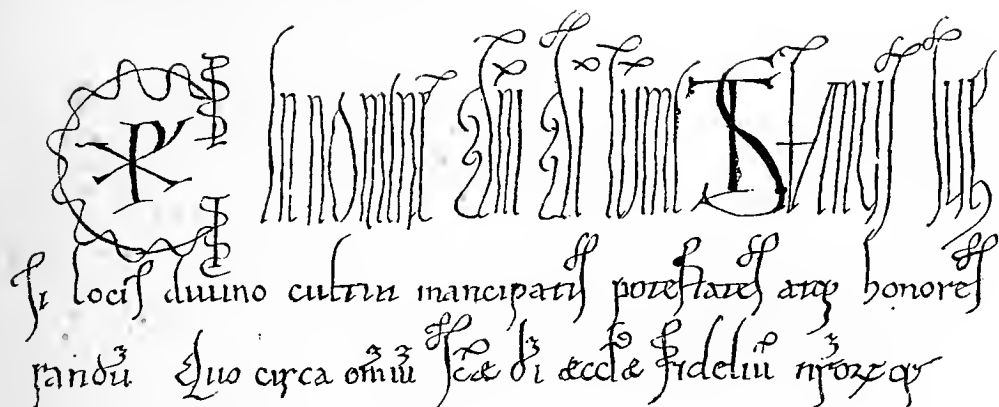 In nomine dn̄i dī sum̄i
Si locis diuino cultui mancipatis potestates atq; honores
randū Quo circa om̄iū scæ dī æcclæ fideliū